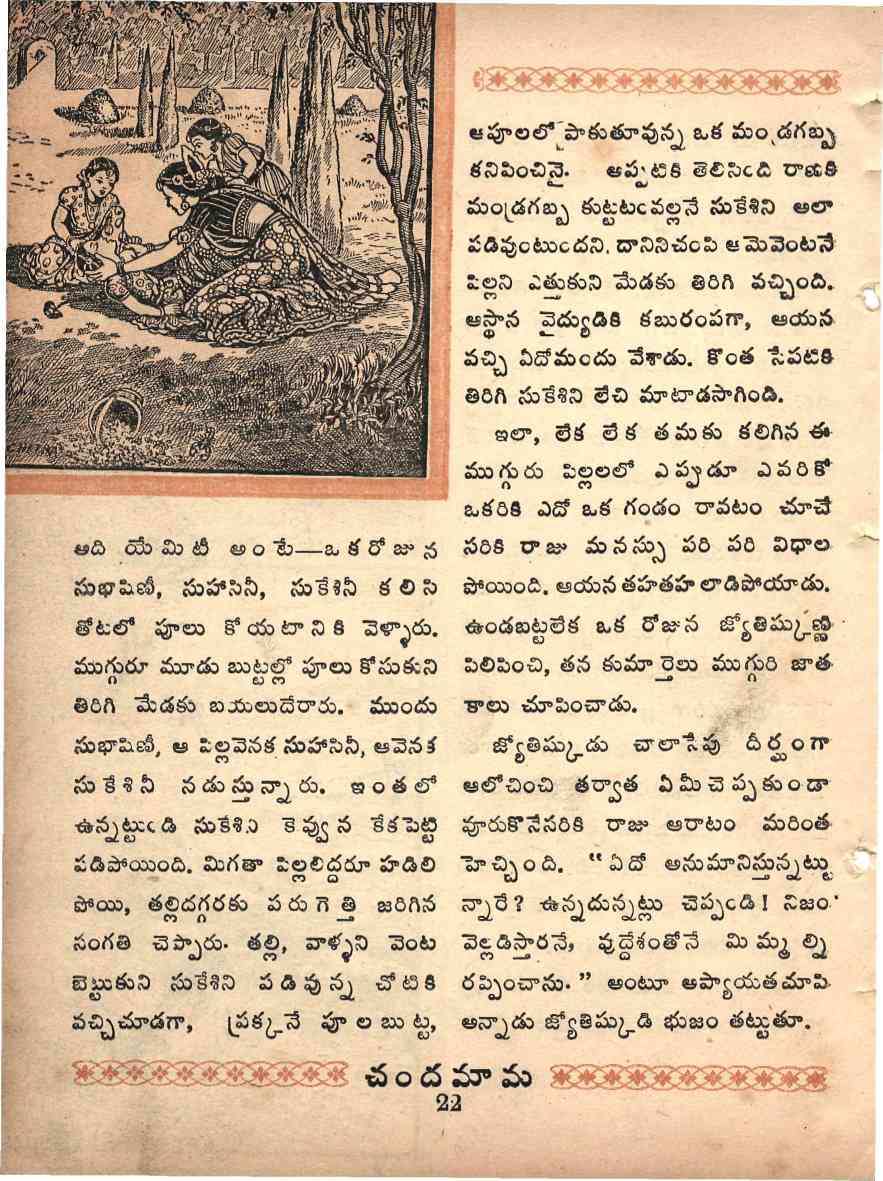 అది యేమిటీ అంటే—ఒకరోజున
సుభాషిణీ, సుహాసినీ, సుకేశినీ కలిసి
తోటలో పూలు కోయటానికి వెళ్ళారు.
ముగ్గురూ మూడు బుట్టల్లో పూలు కోసుకుని
తిరిగి మేడకు బయలుదేరారు. ముందు
సుభాషిణీ, ఆ పిల్లవెనక సుహాసినీ, ఆవెనక
సుకేశినీ నడుస్తున్నారు. ఇంతలో
ఉన్నట్టుండి సుకేశిని కెవ్వున కేకపెట్టి
పడిపోయింది. మిగతా పిల్లలిద్దరూ హడిలి
పోయి, తల్లిదగ్గరకు పరుగెత్తి జరిగిన
సంగతి చెప్పారు. తల్లి, వాళ్ళని వెంట
బెట్టుకుని సుకేశిని పడివున్న చోటికి
వచ్చిచూడగా, ప్రక్కనే పూలబుట్ట,
ఆపూలలో పాకుతూవున్న ఒక మండ్రగబ్బ
కనిపించినై. అప్పటికి తెలిసింది రాణికి
మండ్రగబ్బ కుట్టటంవల్లనే సుకేశిని అలా
పడివుంటుందని. దానినిచంపి ఆమెవెంటనే
పిల్లని ఎత్తుకుని మేడకు తిరిగి వచ్చింది.
ఆస్థాన వైద్యుడికి కబురంపగా, ఆయన
వచ్చి ఏదోమందు వేశాడు. కొంత సేపటికి
తిరిగి సుకేశిని లేచి మాటాడసాగింది.
ఇలా, లేక లేక తమకు కలిగిన ఈ
ముగ్గురు పిల్లలలో ఎప్పుడూ ఎవరికో
ఒకరికి ఎదో ఒక గండం రావటం చూచే
సరికి రాజు మనస్సు పరి పరి విధాల
పోయింది. ఆయన తహతహలాడిపోయాడు.
ఉండబట్టలేక ఒక రోజున జ్యోతిష్కుణ్ణి
పిలిపించి, తన కుమార్తెలు ముగ్గురి జాత
కాలు చూపించాడు.
జ్యోతిష్కుడు చాలాసేపు దీర్ఘంగా
ఆలోచించి తర్వాత ఏమీచెప్పకుండా
వూరుకొనేసరికి రాజు ఆరాటం మరింత
హెచ్చింది. “ఏదో అనుమానిస్తున్నట్టు
న్నారే? ఉన్నదున్నట్లు చెప్పండి! నిజం
వెల్లడిస్తారనే, వుద్దేశంతోనే మిమ్మల్ని
రప్పించాను.” అంటూ ఆప్యాయతచూపి
అన్నాడు జ్యోతిష్కుడి భుజం తట్టుతూ.
చందమామ
22